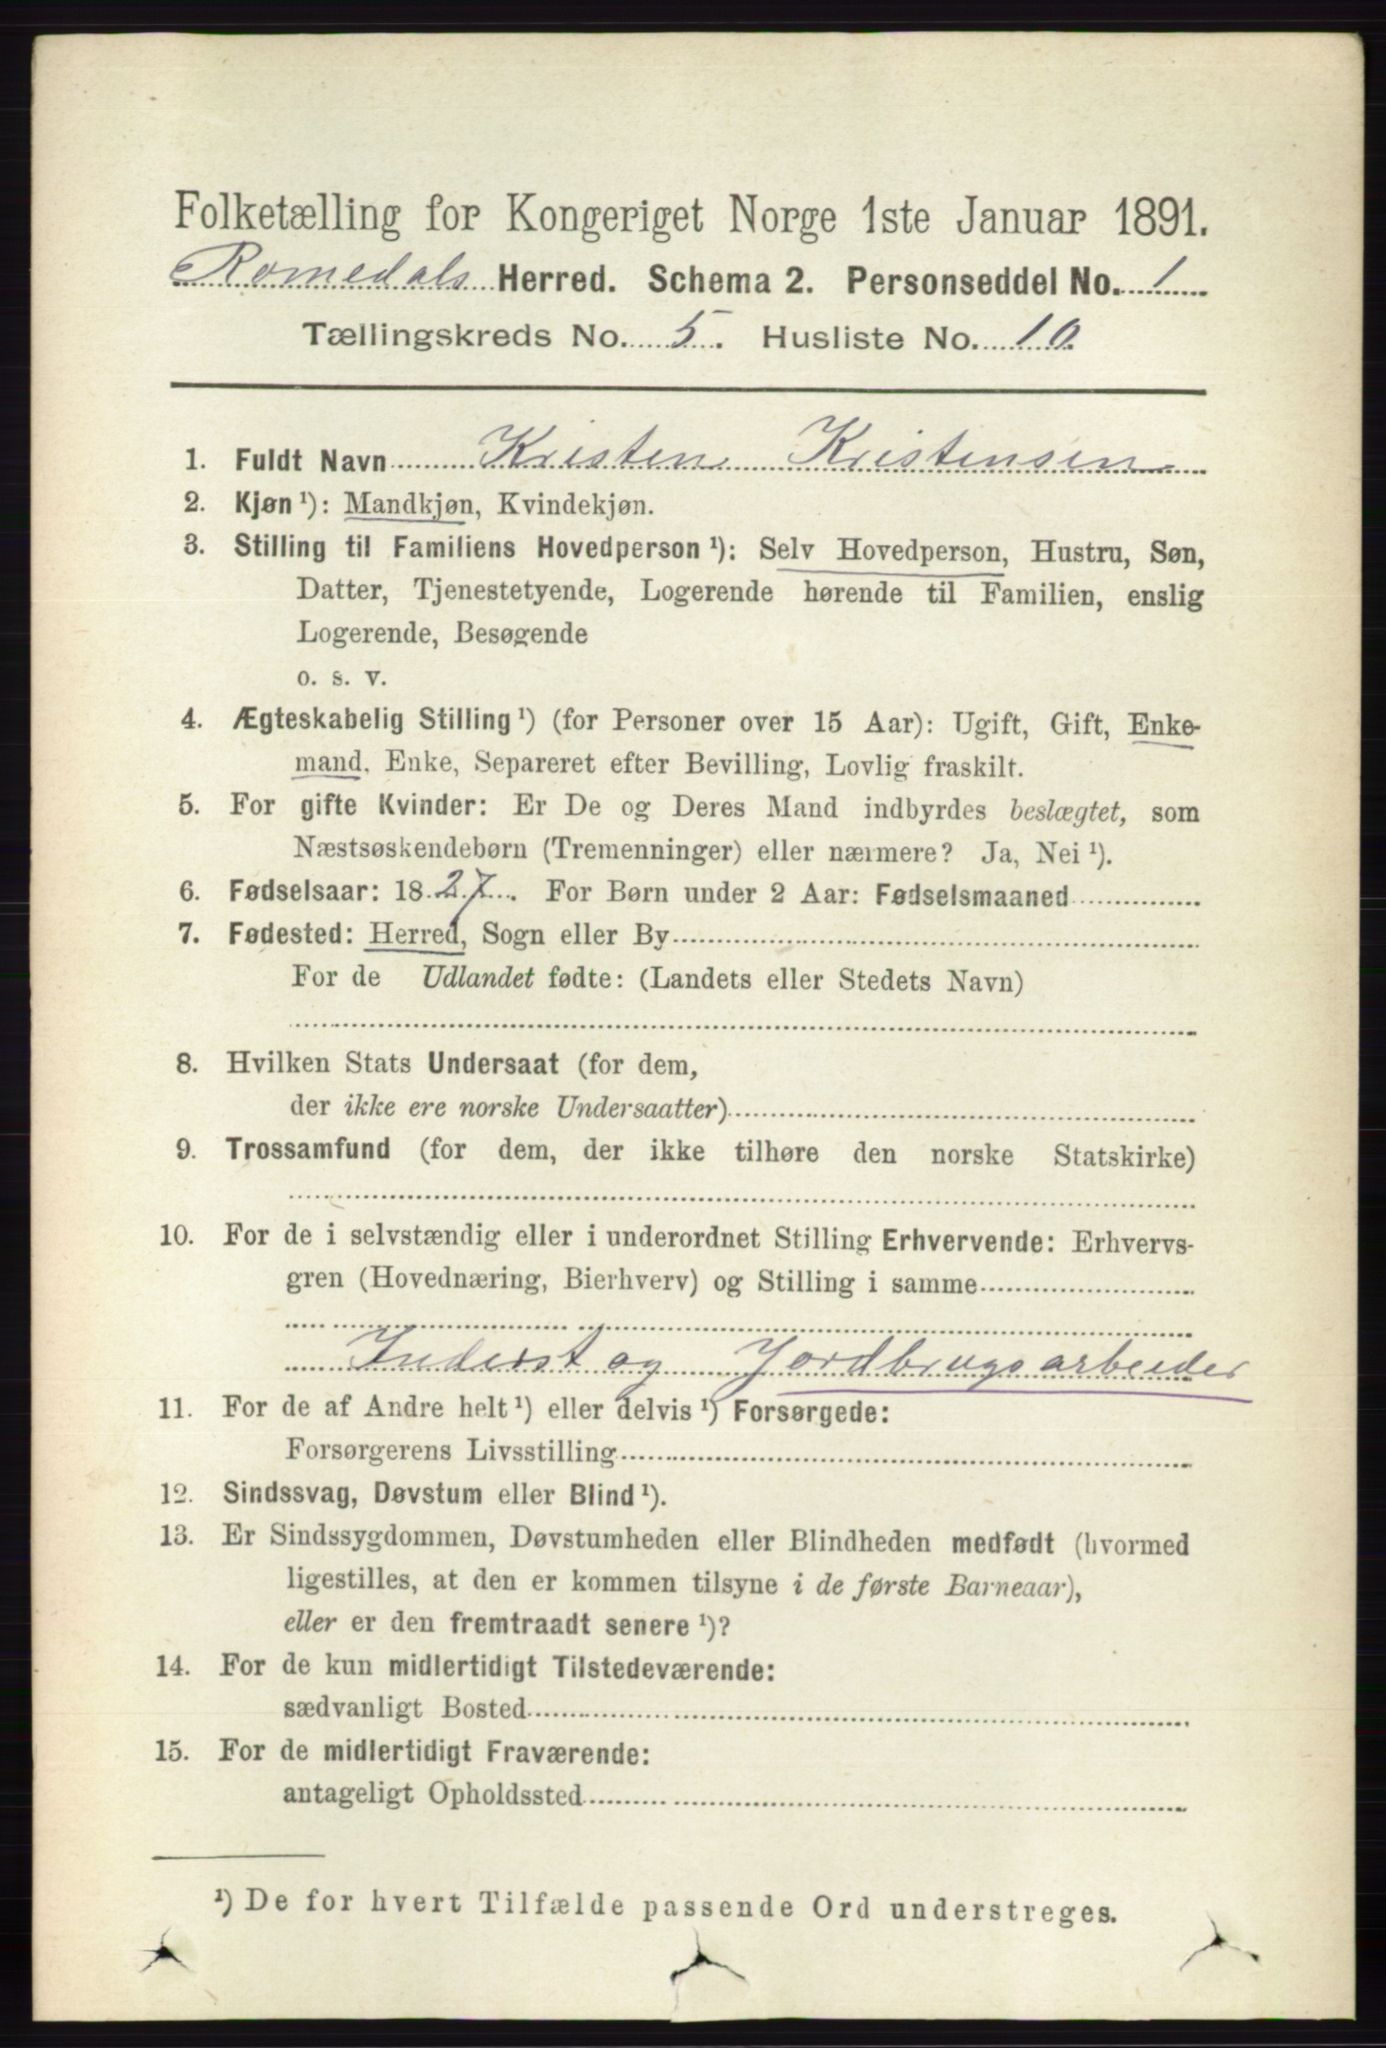 Folketælling for Kongeriget Norge 1ste Januar 1891.
Romedals Herred. Schema 2. Personseddel No. 1
Tællingskreds No. 5. Husliste No. 10.
1. Fuldt Navn Kristen Kristensen
2. Kjøn ¹): Mandkjøn, Kvindekjøn.
3. Stilling til Familiens Hovedperson ¹): Selv Hovedperson, Hustru, Søn,
Datter, Tjenestetyende, Logerende hørende til Familien, enslig
Logerende, Besøgende
o. s. v.
4. Ægteskabelig Stilling ¹) (for Personer over 15 Aar): Ugift, Gift, Enke-
mand, Enke, Separeret efter Bevilling, Lovlig fraskilt.
5. For gifte Kvinder: Er De og Deres Mand indbyrdes beslægtet, som
Næstsøskendebørn (Tremenninger) eller nærmere? Ja, Nei ¹).
6. Fødselsaar: 1827. For Børn under 2 Aar: Fødselsmaaned
7. Fødested: Herred, Sogn eller By
For de Udlandet fødte: (Landets eller Stedets Navn)
8. Hvilken Stats Undersaat (for dem,
der ikke ere norske Undersaatter)
9. Trossamfund (for dem, der ikke tilhøre den norske Statskirke)
10. For de i selvstændig eller i underordnet Stilling Erhvervende: Erhvervs-
gren (Hovednæring, Bierhverv) og Stilling i samme
Inderst og Jordbrugsarbeider
11. For de af Andre helt ¹) eller delvis ¹) Forsørgede:
Forsørgerens Livsstilling
12. Sindssvag, Døvstum eller Blind ¹).
13. Er Sindssygdommen, Døvstumheden eller Blindheden medfødt (hvormed
ligestilles, at den er kommen tilsyne i de første Barneaar),
eller er den fremtraadt senere ¹)?
14. For de kun midlertidigt Tilstedeværende:
sædvanligt Bosted
15. For de midlertidigt Fraværende:
antageligt Opholdssted
¹) De for hvert Tilfælde passende Ord understreges.